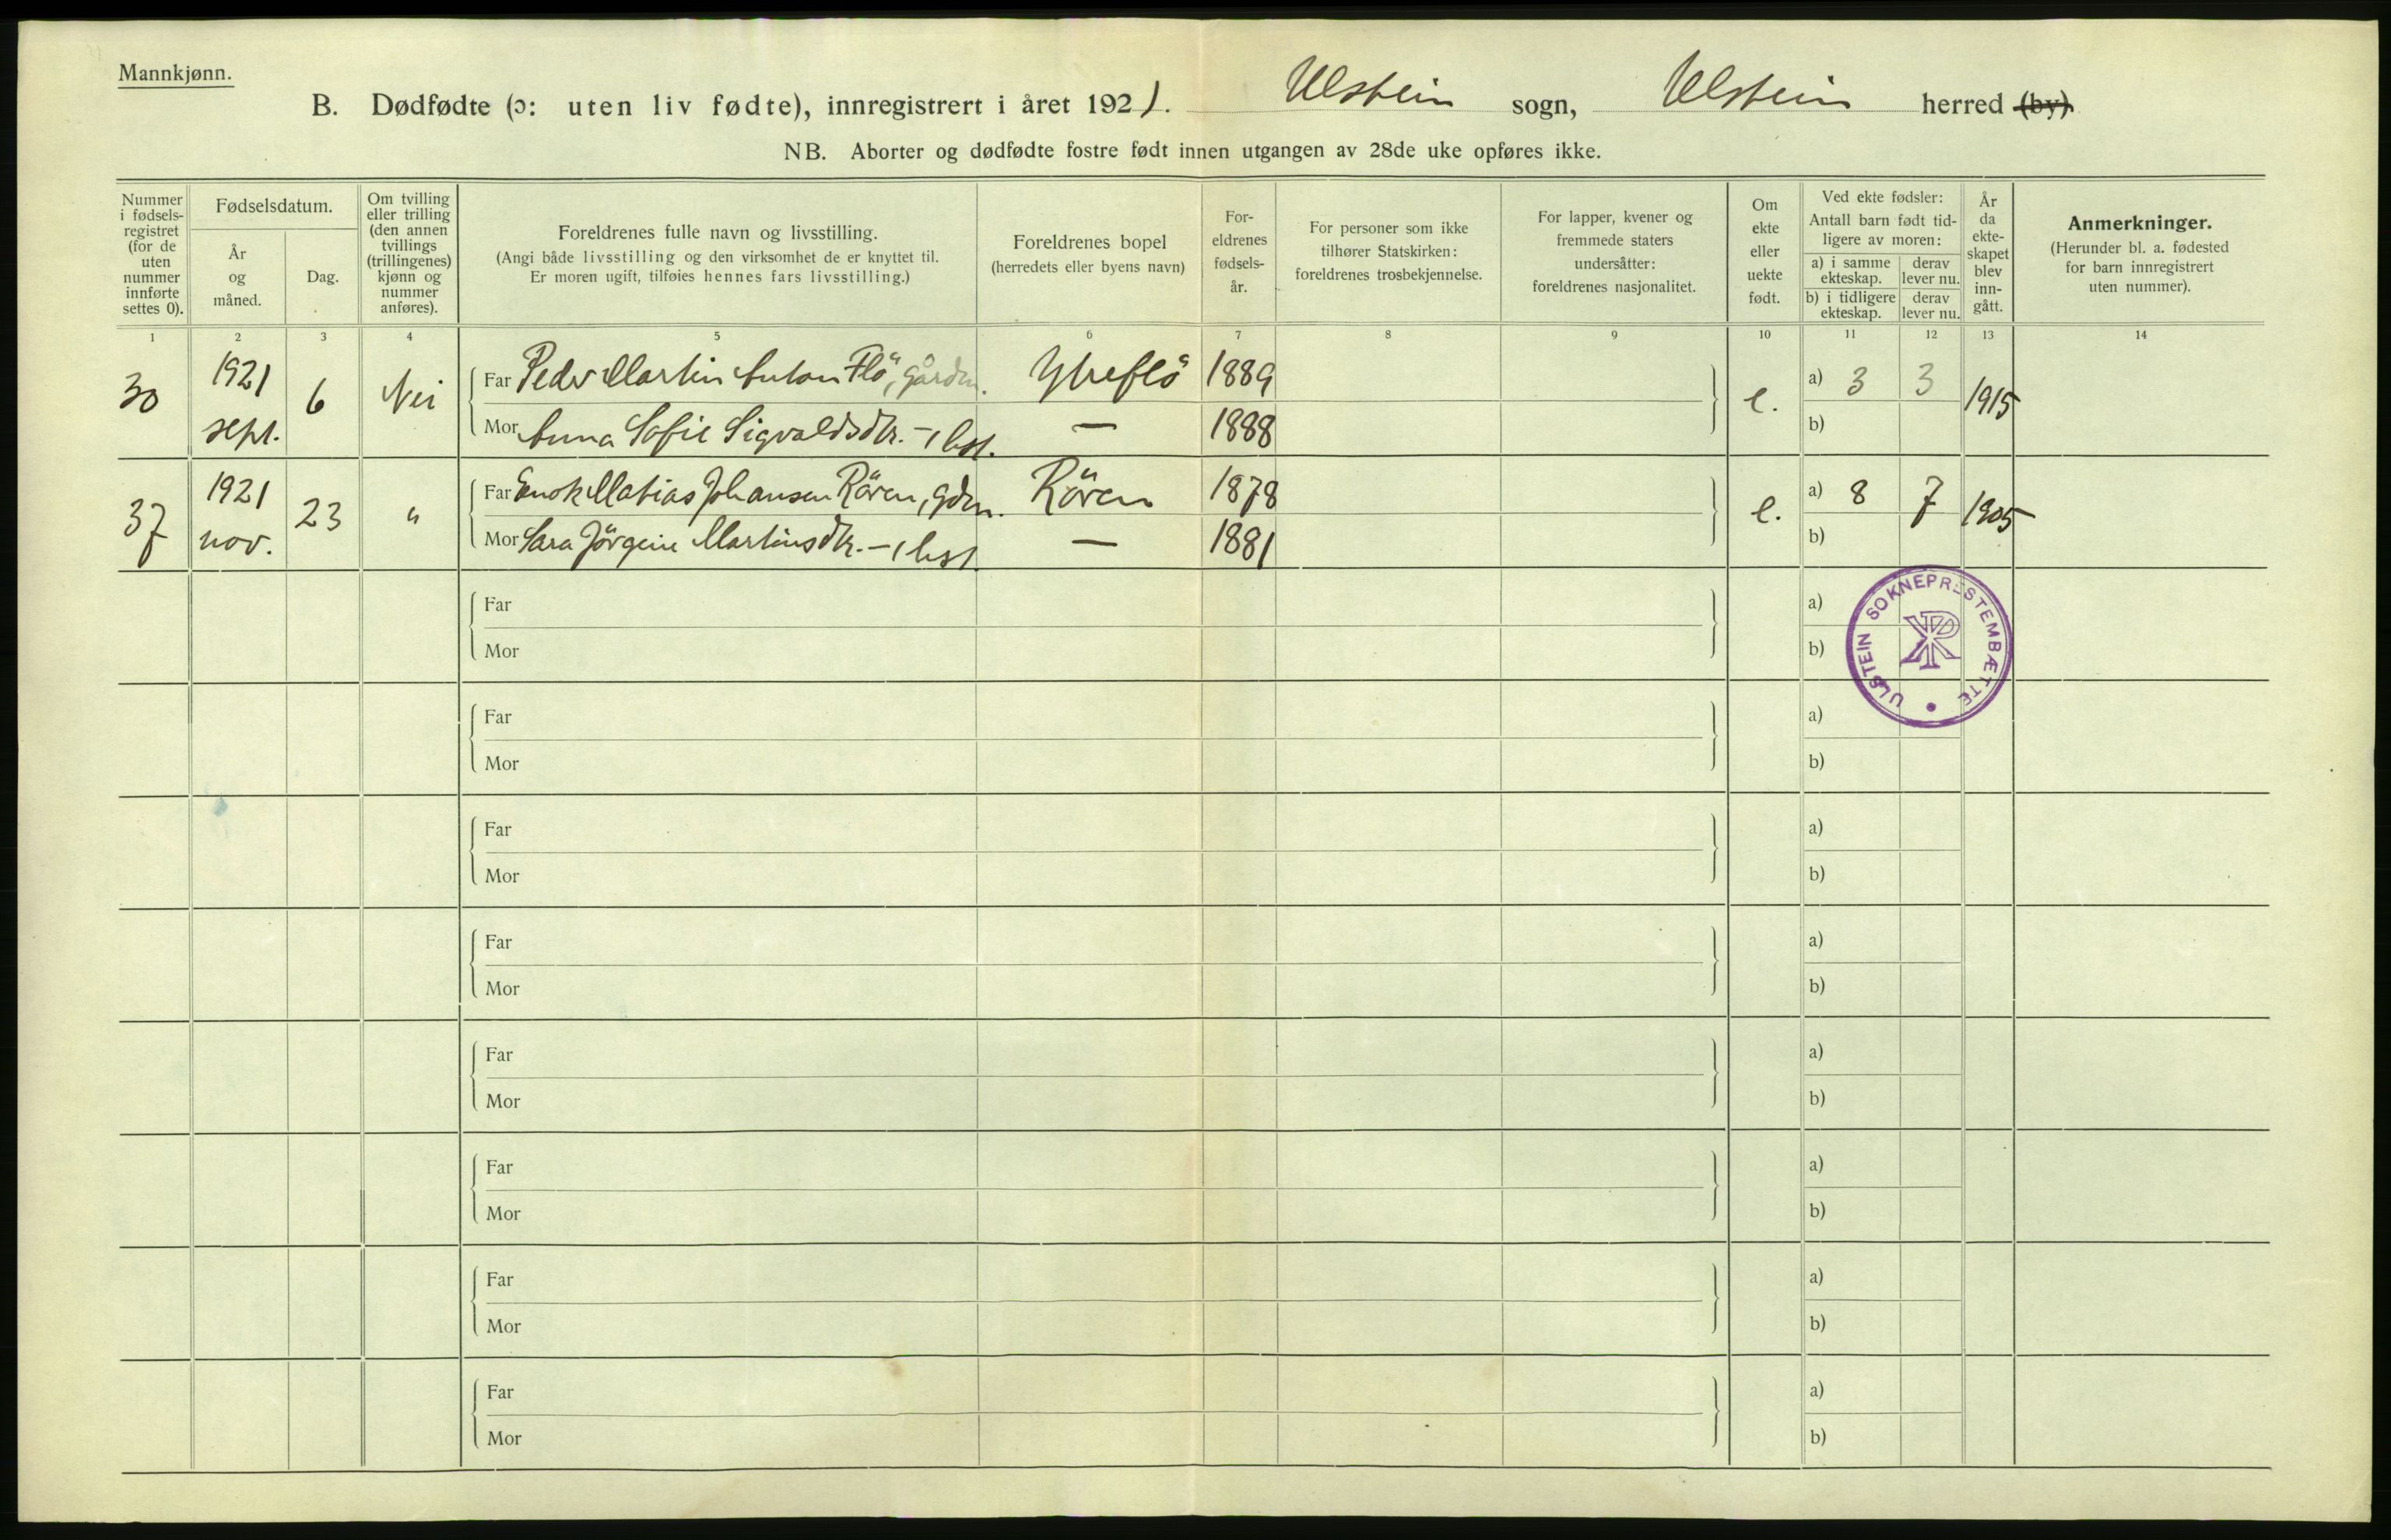 Mannkjønn.
B. Dødfødte (ɔ: uten liv fødte), innregistrert i året 1921. Ulstein sogn, Ulstein herred (by)
NB. Aborter og dødfødte fostre født innen utgangen av 28de uke opføres ikke.
Nummer i fødsels- registret (for de uten nummer innførte settes 0).
Fødselsdatum.
År og måned.
Dag.
Om tvilling eller trilling (den annen tvillings (trillingenes) kjønn og nummer anføres).
Foreldrenes fulle navn og livsstilling.
(Angi både livsstilling og den virksomhet de er knyttet til.
Er moren ugift, tilføies hennes fars livsstilling.)
Foreldrenes bopel
(herredets eller byens navn)
For- eldrenes fødsels- år.
For personer som ikke tilhører Statskirken: foreldrenes trosbekjennelse.
For lapper, kvener og fremmede staters undersåtter: foreldrenes nasjonalitet.
Om ekte eller uekte født.
Ved ekte fødsler:
Antall barn født tid- ligere av moren:
a) i samme ekteskap.
derav lever nu.
b) i tidligere ekteskap.
derav lever nu.
År da ekte- skapet blev inn- gått.
Anmerkninger.
(Herunder bl. a. fødested for barn innregistrert uten nummer).
1 2 3 4 5 6 7 8 9 10 11 12 13 14
30 1921 sept. 6 Nei
Far Peder Martin Anton Flö, gårdm. Ytreflö 1889
Mor Anna Sofie Sigvaldsdtr. – , hst. — 1888
e. a) 3 3 1915
b)
37 1921 nov. 23 "
Far Enok Matias Johansen Rören, gdm. Rören 1878
Mor Sara Jörgine Martinsdtr. – , hst. — 1881
e. a) 8 7 1905
b)
ULSTEIN SOKNEPRESTEMBÆTTE
Far a)
Mor b)
Far a)
Mor b)
Far a)
Mor b)
Far a)
Mor b)
Far a)
Mor b)
Far a)
Mor b)
Far a)
Mor b)
Far a)
Mor b)